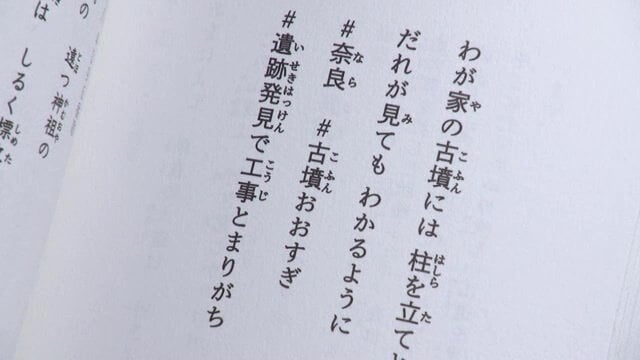 わが家の古墳には 柱を立て
だれが見ても わかるように
#奈良 #古墳おおすぎ
#遺跡発見で工事とまりがち
遠つ神祖の
しるく標